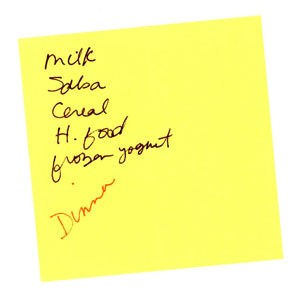 milk
Salsa
Cereal
H. food
frozen yogurt
Dinner